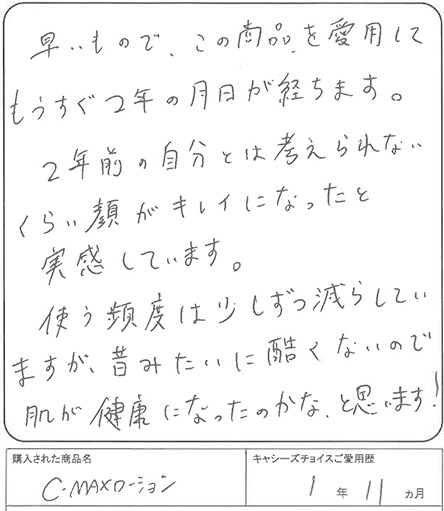 早いもので、この商品を愛用して
もうすぐ2年の月日が経ちます。
2年前の自分とは考えられない
くらい顔がキレイになったと
実感しています。
使う頻度は少しずつ減らしてい
ますが、昔みたいに酷くないので
肌が健康になったのかな、と思います!
購入された商品名
キャシーズチョイスご愛用歴
C-MAXローション
1年11ヵ月